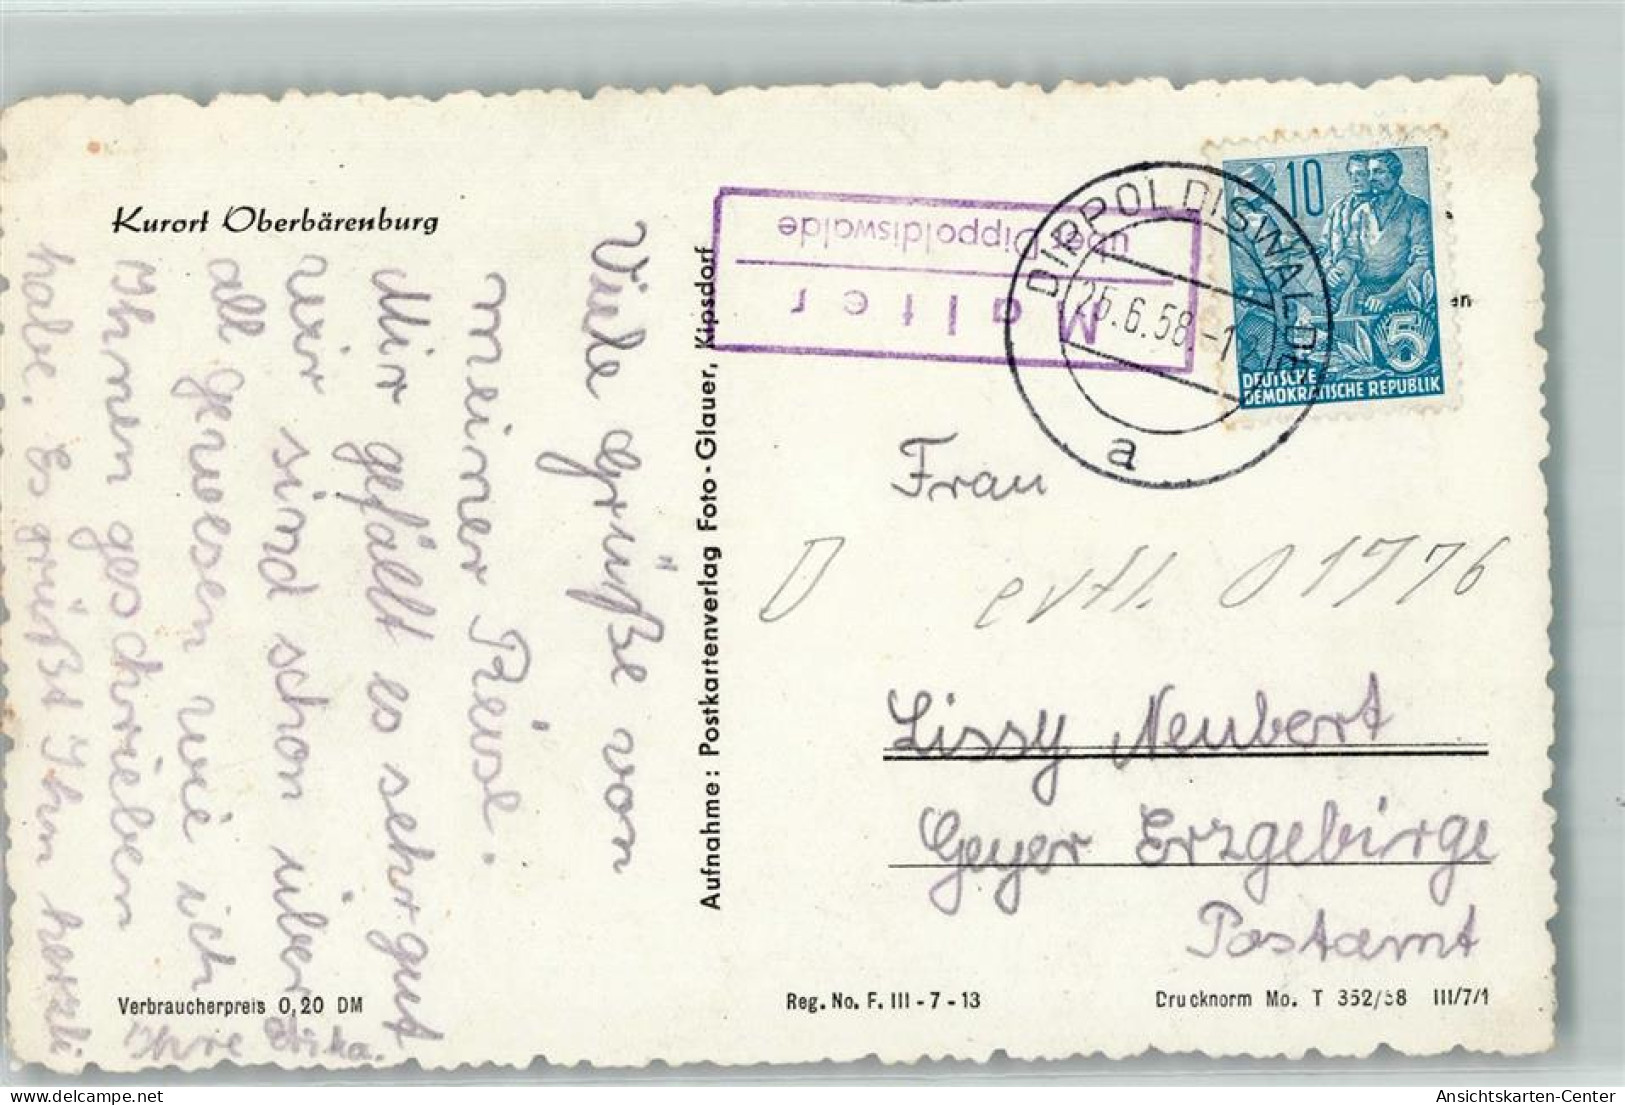 Kurort Oberbärenburg
Viele Grüße von
meiner Reise.
Mir gefällt es sehr gut
wir sind schon über
all gewesen wie ich
Ihnen geschrieben
habe. Es grüßt Ihn herzli
Ihre Erika.
Verbraucherpreis 0,20 DM
Aufnahme: Postkartenverlag Foto-Glauer, Kipsdorf
Malter
über Dippoldiswalde
DIPPOLDISWALDE
25.6.58.-1
a
10
5
DEUTSCHE
DEMOKRATISCHE REPUBLIK
en
Frau
D evtl. 01776
Lissy Neubert
Geyer Erzgebirge
Postamt
Reg. No. F. III - 7 - 13
Drucknorm Mo. T 352/58 III/7/1
Ansichtskarten-Center